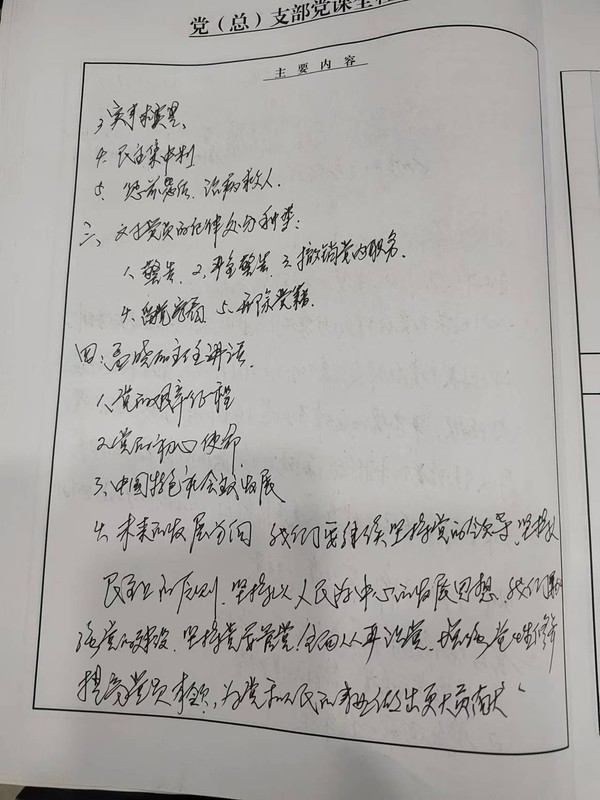 党（总）支部党课全程
主要内容
3、实事求是、
4、民主集中制
5、惩前毖后、治病救人.
三、对于党员的纪律处分种类:
1、警告、2、严重警告、3、撤销党内职务、
4、留党察看、5、开除党籍.
四:高晓 主任讲话.
1、党的艰辛征程
2、党的初心使命
3、中国特色社会主义发展
4、未来的发展方向 我们要继续坚持党的领导,坚持以
民 的原则,坚持以人民为中心的发展思想.我们要加
强党的建设,坚持党要管党,全面从严治党,增强党性修养
提高党员本领,为党和人民的事业做出更大贡献